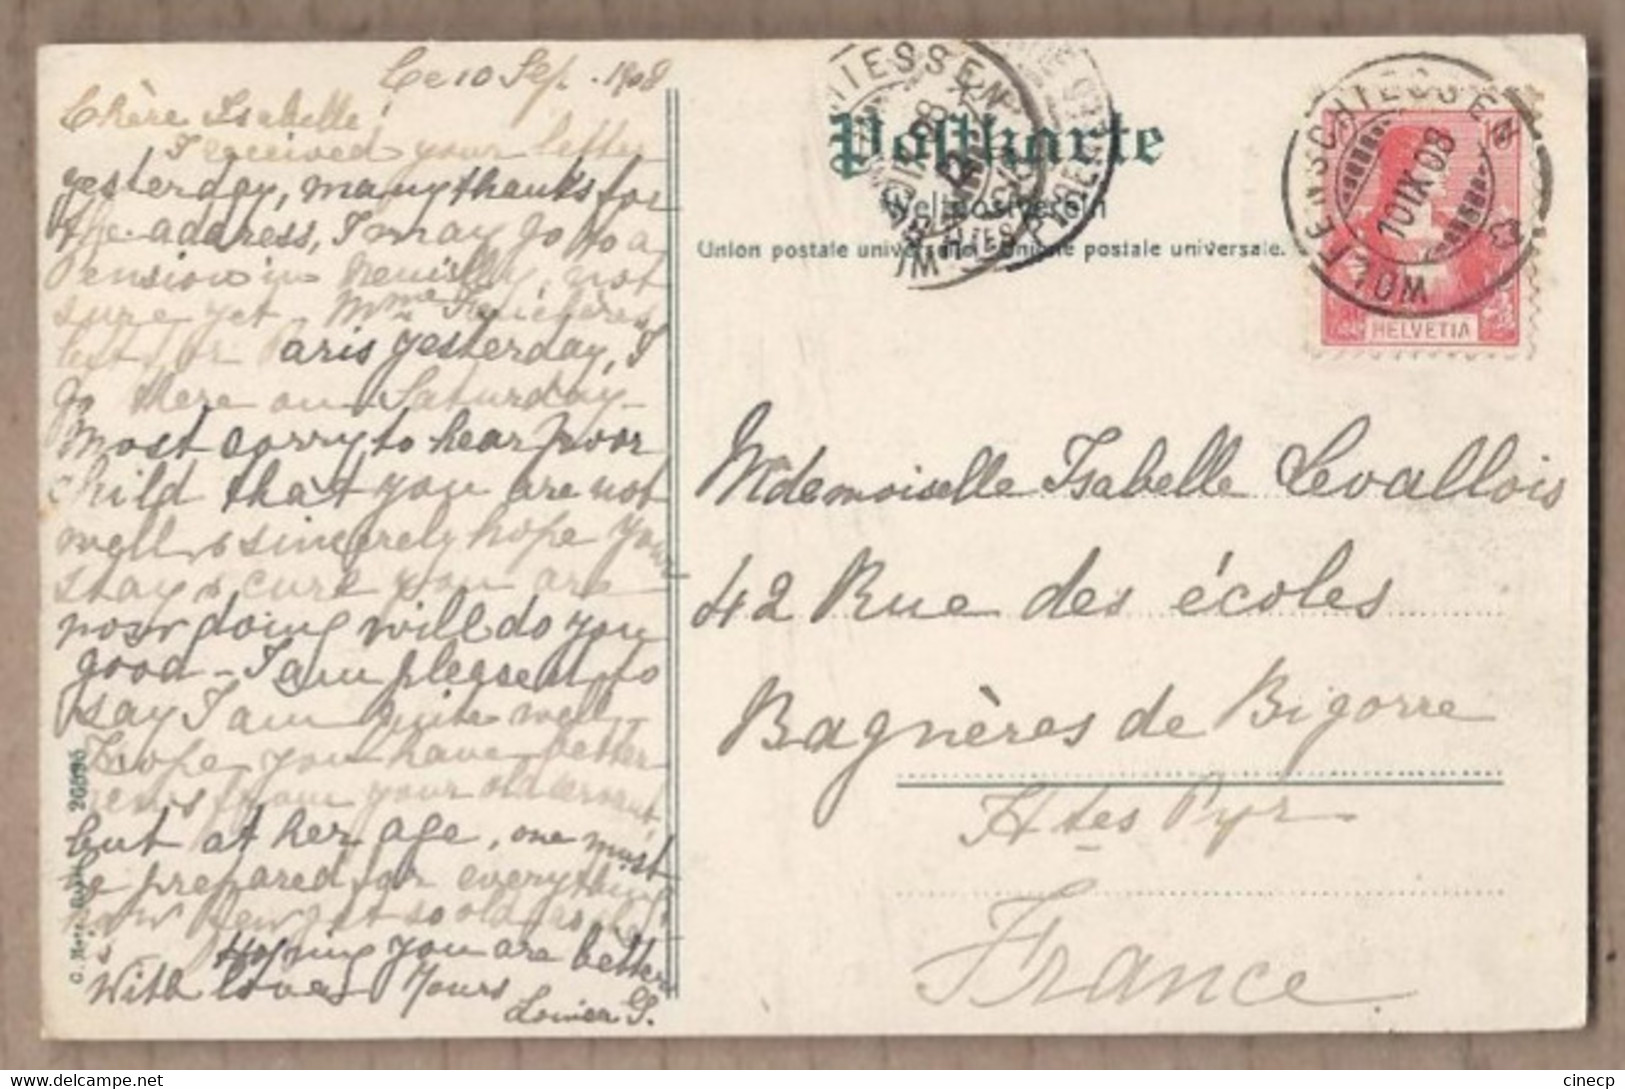 Ce 10 Sep. 1908
Chère Isabelle!
I received your letter
yesterday, many thanks for
the address, I may go to a
Pension in Neuilly, not
sure yet - Mme
left for Paris yesterday, I
go there on Saturday -
Most sorry to hear poor
child that you are not
well & sincerely hope your
stay & cure you are
now doing will do you
good - I am pleased to
say I am quite well
hope you have better
news from your old servant,
but at her age, one must
be prepared for everything
how few get so old as she
is - Hoping you are better
With love, Yours
S.
Postkarte
Weltpostverein
Union postale universelle. Unione postale universale.
WOLFENSCHIESSEN
10 IX 08
HELVETIA
Mademoiselle Isabelle Levallois
42 Rue des écoles
Bagnères de Bigorre
Htes Pyr
France
26595
cinecp